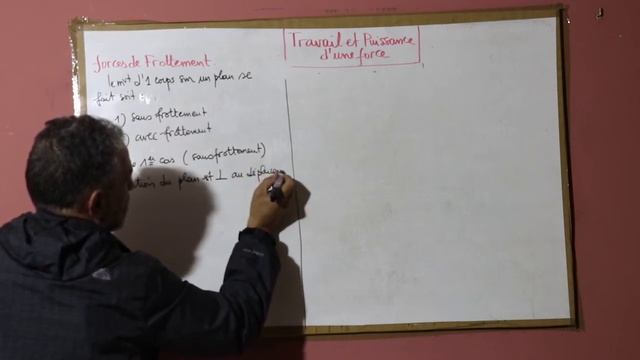 Travail et Puissance
d'une force
forces de Frottement
le mvt d'1 corps sur un plan se
fait soit
1) sans frottement
) avec frottement
1er cas (sans frottement)
du plan est ⊥ au déplacem